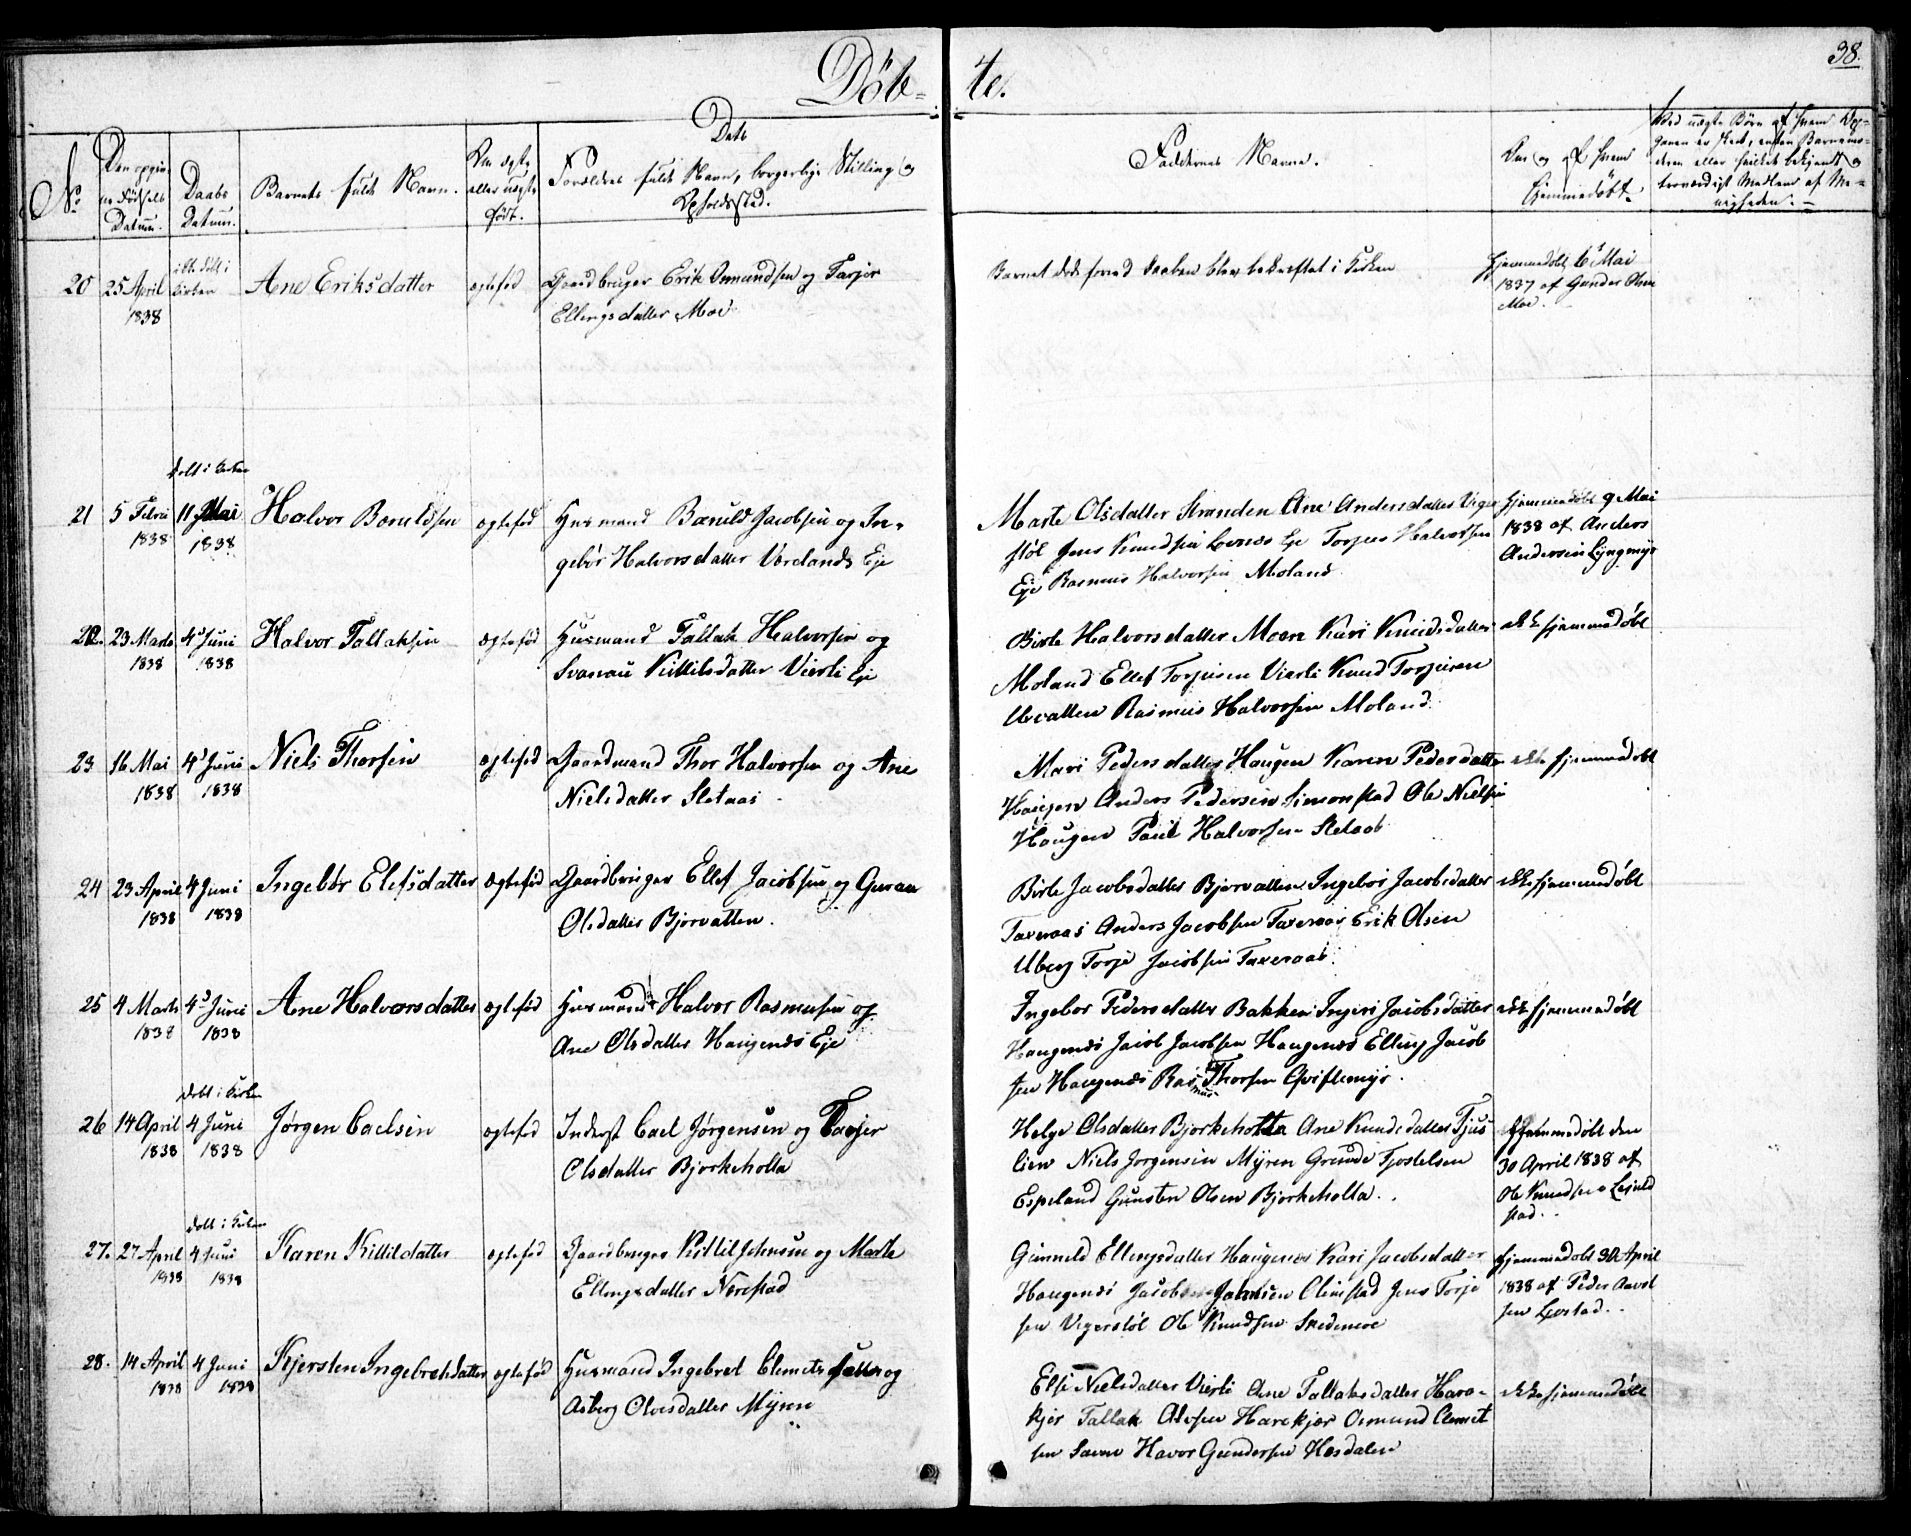 Døb-
te.
38.
No
Den opgiv-
ne Fødsels
Datum.
Daabs
Datum.
Barnets fulde Navn.
Om ægte
eller uægte
født.
Dets
Forældres fulde Navn, borgerlige Stilling og
Opholdssted.
Faddernes Navne.
Om og af hvem
hjemmedøbt.
Ved uægte Børn af hvem Op-
gaven er skeet, enten Barnemo-
deren eller hvilket bekjendt og
troværdigt Medlem af Me-
nigheden.
20
25 April
1838
ikke døbt i
Kirken
Ane Eriksdatter
ægtefød
Gaardbruger Erik Osmundsen og Torjer
Ellingsdatter Moe
Barnet døde forend Daaben blev bekræftet i Kirken
hjemmedøbt 6 Mai
1837 af Gunder Olsen
Moe.
21
5 Febru
1838
Døbt i Kirken
11 Mai
1838
Halvor Boruldsen
ægtefød
Husmand Bæruld Jacobsen og In-
gebor Halvorsdatter Verlands Eje
Marte Olsdatter Stranden Ane Andersdatter Veger
støl Jens Knudsen Lovnes Eje Torjus Halvorsen
Eje Rasmus Halvorsen Moland
hjemmedøbt 9 Mai
1838 af Anders
Andersen Lyngmyr
22.
23 Marts
1838
4 Juni
1838
Halvor Tallaksen
ægtefød
Husmand Tallak Halvorsen og
Svanau Kittilsdatter Vierli Eje
Birte Halvorsdatter Moen Kari Knudsdatter
Moland Ellef Torjusen Vierli Knud Torjusen
Urvatten Rasmus Halvorsen Moland
ikke hjemmedøbt
23
16 Mai
1838
4 Juni
1838
Niels Thorsen
ægtefød
Gaardmand Thor Halvorsen og Ane
Nielsdatter Sletaas
Mari Pedersdatter Haugen Karen Pedersdatter
Haugen Anders Pedersen Simonstad Ole Nielsen
Haugen Paul Halvorsen Sletaas
ikke hjemmedøbt
24
23 April
1838
4 Juni
1838
Ingebør Elefsdatter
Ægtefød
Gaardbruger Ellef Jacobsen og Guran
Olsdatter Bjorvatten.
Birte Jacobsdatter Bjorvatten Ingebor Jacobsdatter
Taxeraas Anders Jacobsen Taxeraas Erik Olsen
Uberg Torje Jacobsen Taxeraas.
ikke hjemmedøbt
25
4 Marts
1838
4 Juni
1838
Ane Halvorsdatter
ægtefød
Husmand Halvor Rasmusen og
Ane Olsdatter Haugenes Eje
Ingebor Pedersdatter Bakken Ingeri Jacobsdatter
Haugenes Jacob Jacobsen Haugenes Elling Jacob
sen Haugenes Rasmus Thorsen Qvistemyr.
ikke hjemmedøbt
26
14 April
1838
Døbt i Kirken
4 Juni
1838
Jørgen Caelsen
ægtefød
Inderst Cael Jørgensen og Torjer
Olsdatter Bjorkeholta
Helge Olsdatter Bjorkeholta Ane Knudsdatter Tjus
lien Niels Jorgensen Myren Grunde Tjostelsen
Espeland Gunsten Olsen Bjorkeholta.
Hjemmedøbt den
30 April 1838 af
Ole Knudsen Lejuld
stad.
27.
27 April
1838
Døbt i Kirken
4 Juni
1838
Karen Kittildatter
ægtefød
Gaardbruger Kittil Jensen og Marte
Ellingsdatter Nerestad
Gunneld Ellingsdatter Haugenes Kari Jacobsdatter
Haugenes Jacob Jensen Olimstad Jens Torje
sen Vegerstøl Ole Knudsen Svedemoe
hjemmedøbt 30 April
1838 af Peder Aavel
sen Lovstad.
28.
14 April
1838
4 Juni
1838
Kjersten Ingebretsdatter
ægtefød
Husmand Ingebret Clemetsen og
Asberg Olvesdatter Myren
Else Nielsdatter Vierli Ane Tallaksdatter Hare-
kjer Tallak Alvsen Harekjær Osmund Clemet
sen Saven Havor Gundersen Hesdalen
ikke hjemmedøbt